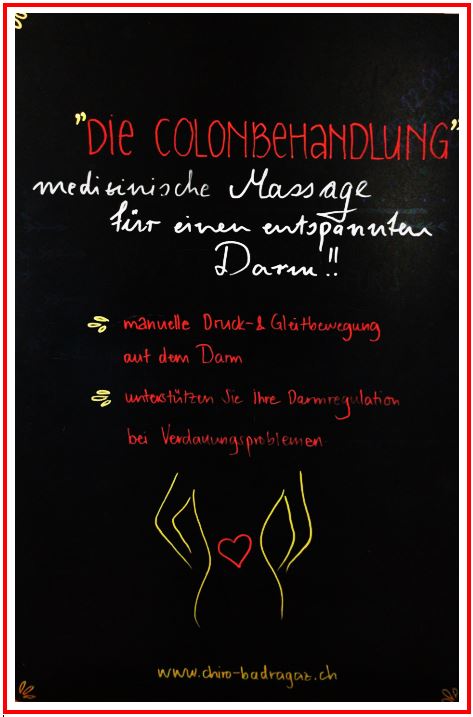 "DIE COLONBEHANDLUNG"
medizinische Massage
für einen entspannten
Darm!!
manuelle Druck-& Gleitbewegung
auf dem Darm
unterstützen Sie Ihre Darmregulation
bei Verdauungsproblemen
www.chiro-badragaz.ch